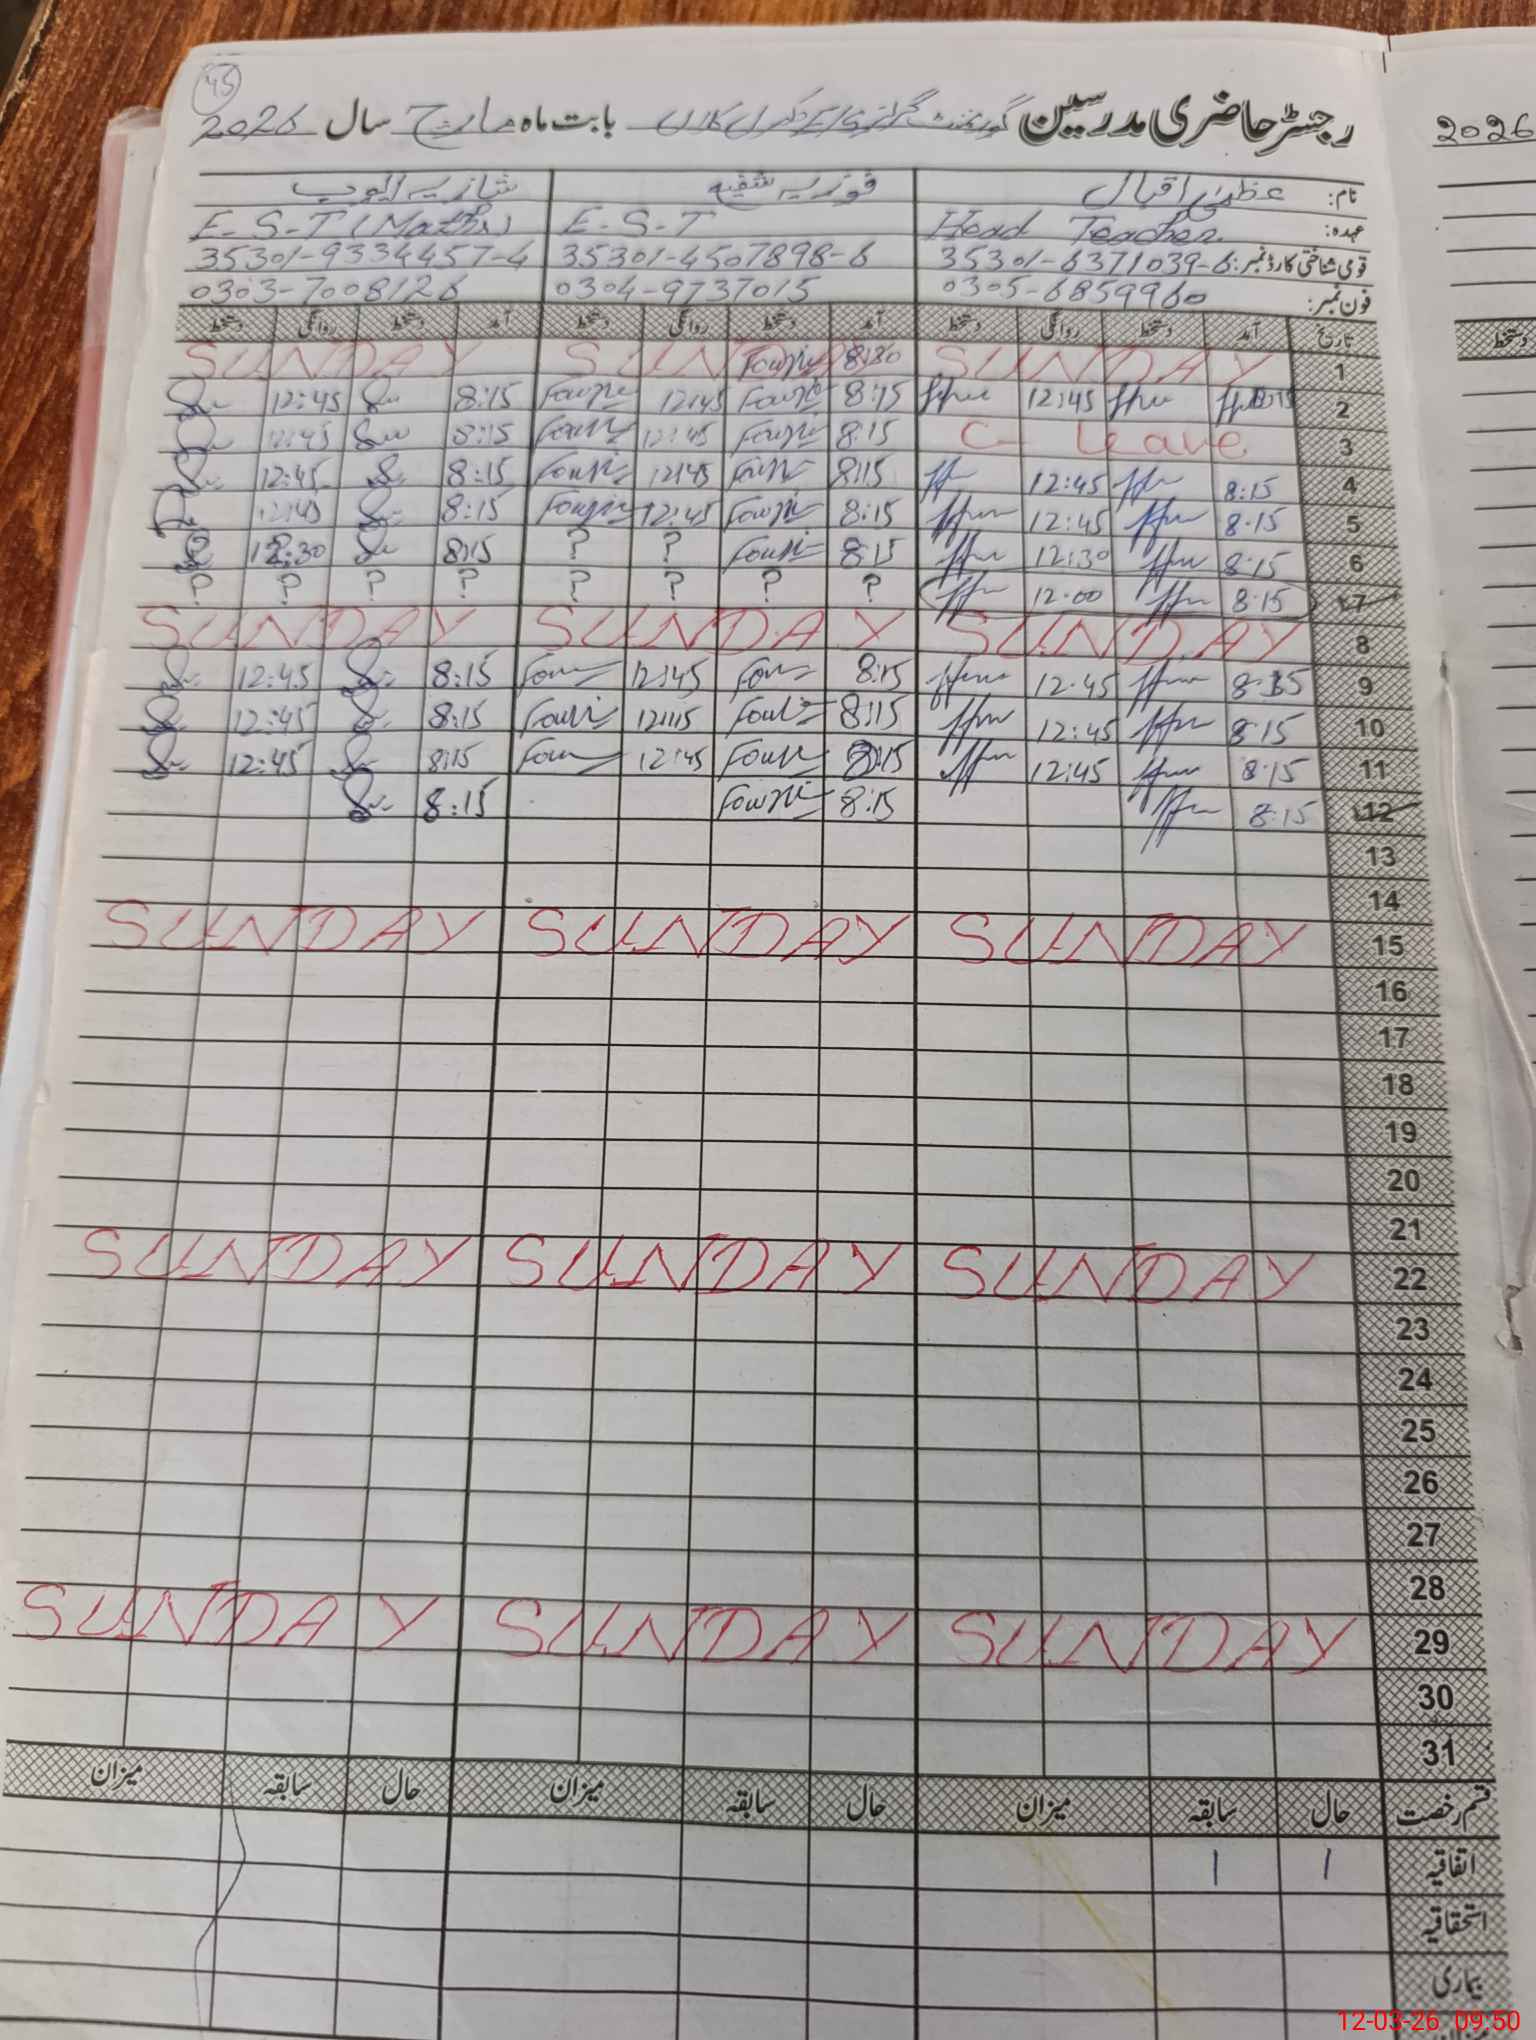 45
رجسٹر حاضری مدرسین گورنمنٹ گرلز بابت ماہ مارچ سال 2026
2026
نام: عظمیٰ اقبال فوزیہ شفیع شازیہ ایوب
عہدہ: Head Teacher E-S-T E-S-T (Maths)
قومی شناختی کارڈ نمبر: 35301-6371039-6 35301-4507898-6 35301-9334457-4
فون نمبر: 0305-6859960 0304-9737015 0303-7008126
تاریخ آمد دستخط روانگی دستخط آمد دستخط روانگی دستخط آمد دستخط روانگی دستخط
دستخط
1 SUNDAY SUNDAY 8:30 Fouzia SUNDAY
2 8:15 12:45 8:15 Fouzia 12:45 Fouzia 8:15 12:45
3 C-Leave 8:15 Fouzia 12:45 Fouzia 8:15 12:45
4 8:15 12:45 8:15 Fouzia 12:45 Fouzia 8:15 12:45
5 8:15 12:45 8:15 Fouzia 12:45 Fouzia 8:15 12:45
6 8:15 12:30 8:15 Fouzia ? ? 8:15 12:30
7 8:15 12:00 ? ? ? ? ? ? ? ?
8 SUNDAY SUNDAY SUNDAY
9 12:45 8:15 12:45 8:15 12:45
10 8:15 12:45 8:15 12:45 8:15 12:45
11 8:15 12:45 8:15 12:45 8:15 12:45
12 8:15 8:15 Fouzia 8:15
13
14
15 SUNDAY SUNDAY SUNDAY
16
17
18
19
20
21
22 SUNDAY SUNDAY SUNDAY
23
24
25
26
27
28
29 SUNDAY SUNDAY SUNDAY
30
31
قسم رخصت حال سابقہ میزان حال سابقہ میزان حال سابقہ میزان
اتفاقیہ 1 1
استحقاقیہ
بیماری
12-03-26 09:50